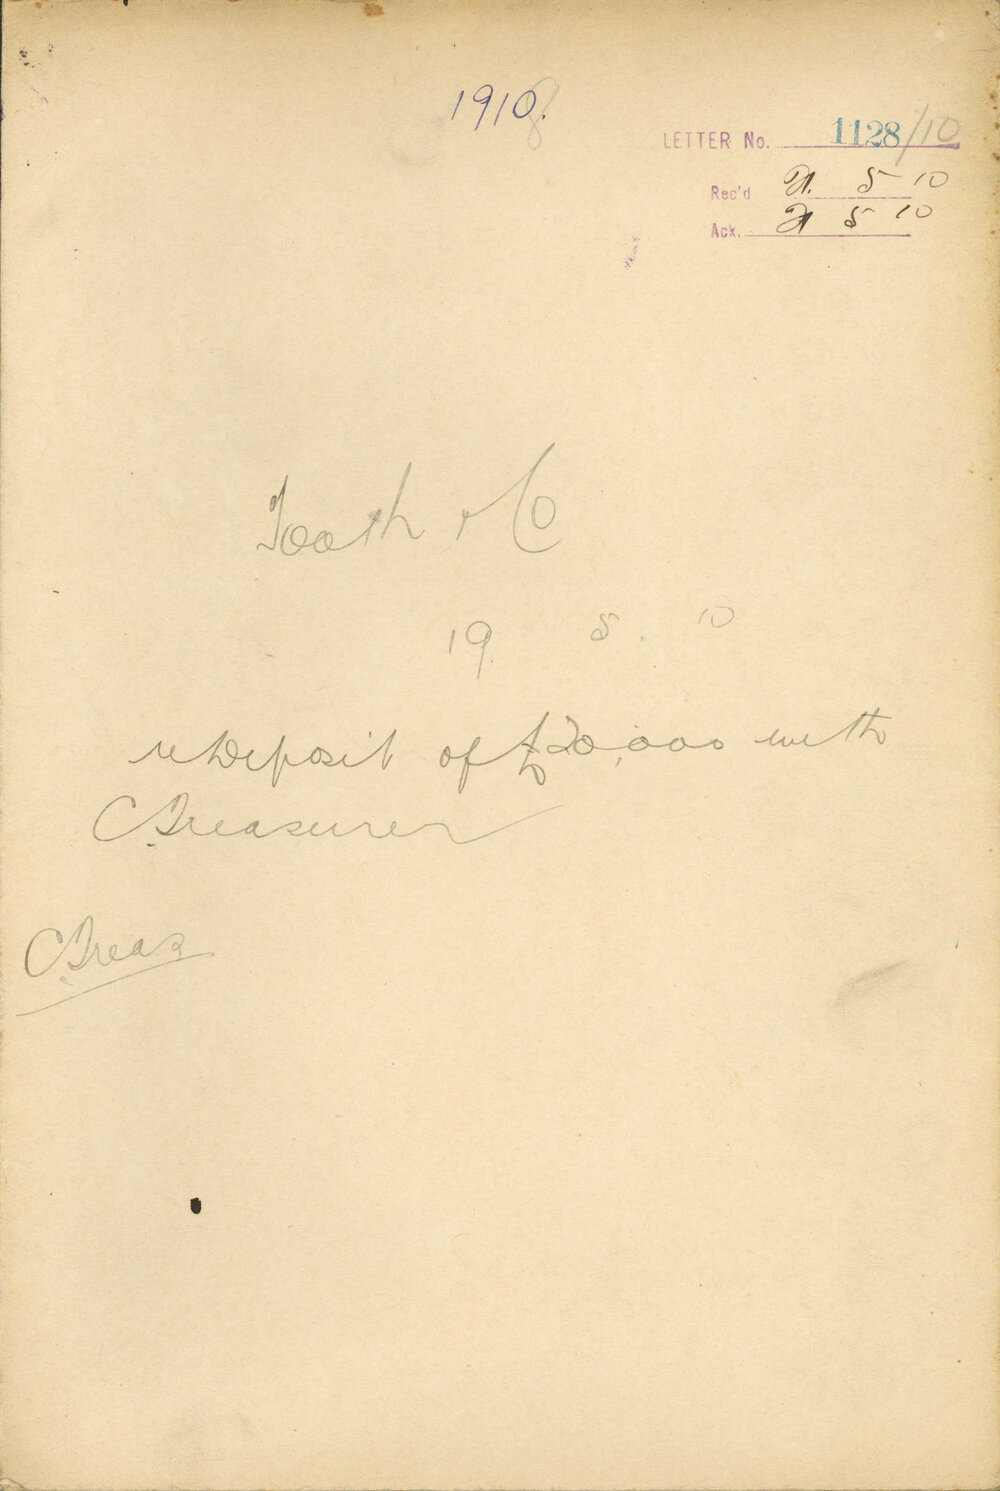 1910.
LETTER No. 1128/10
Rec'd 21. 5 10
Ack. 21 5 10
Tooth & Co
19. 5. 10
re Deposit of £20,000 with
C Treasurer
C Treas